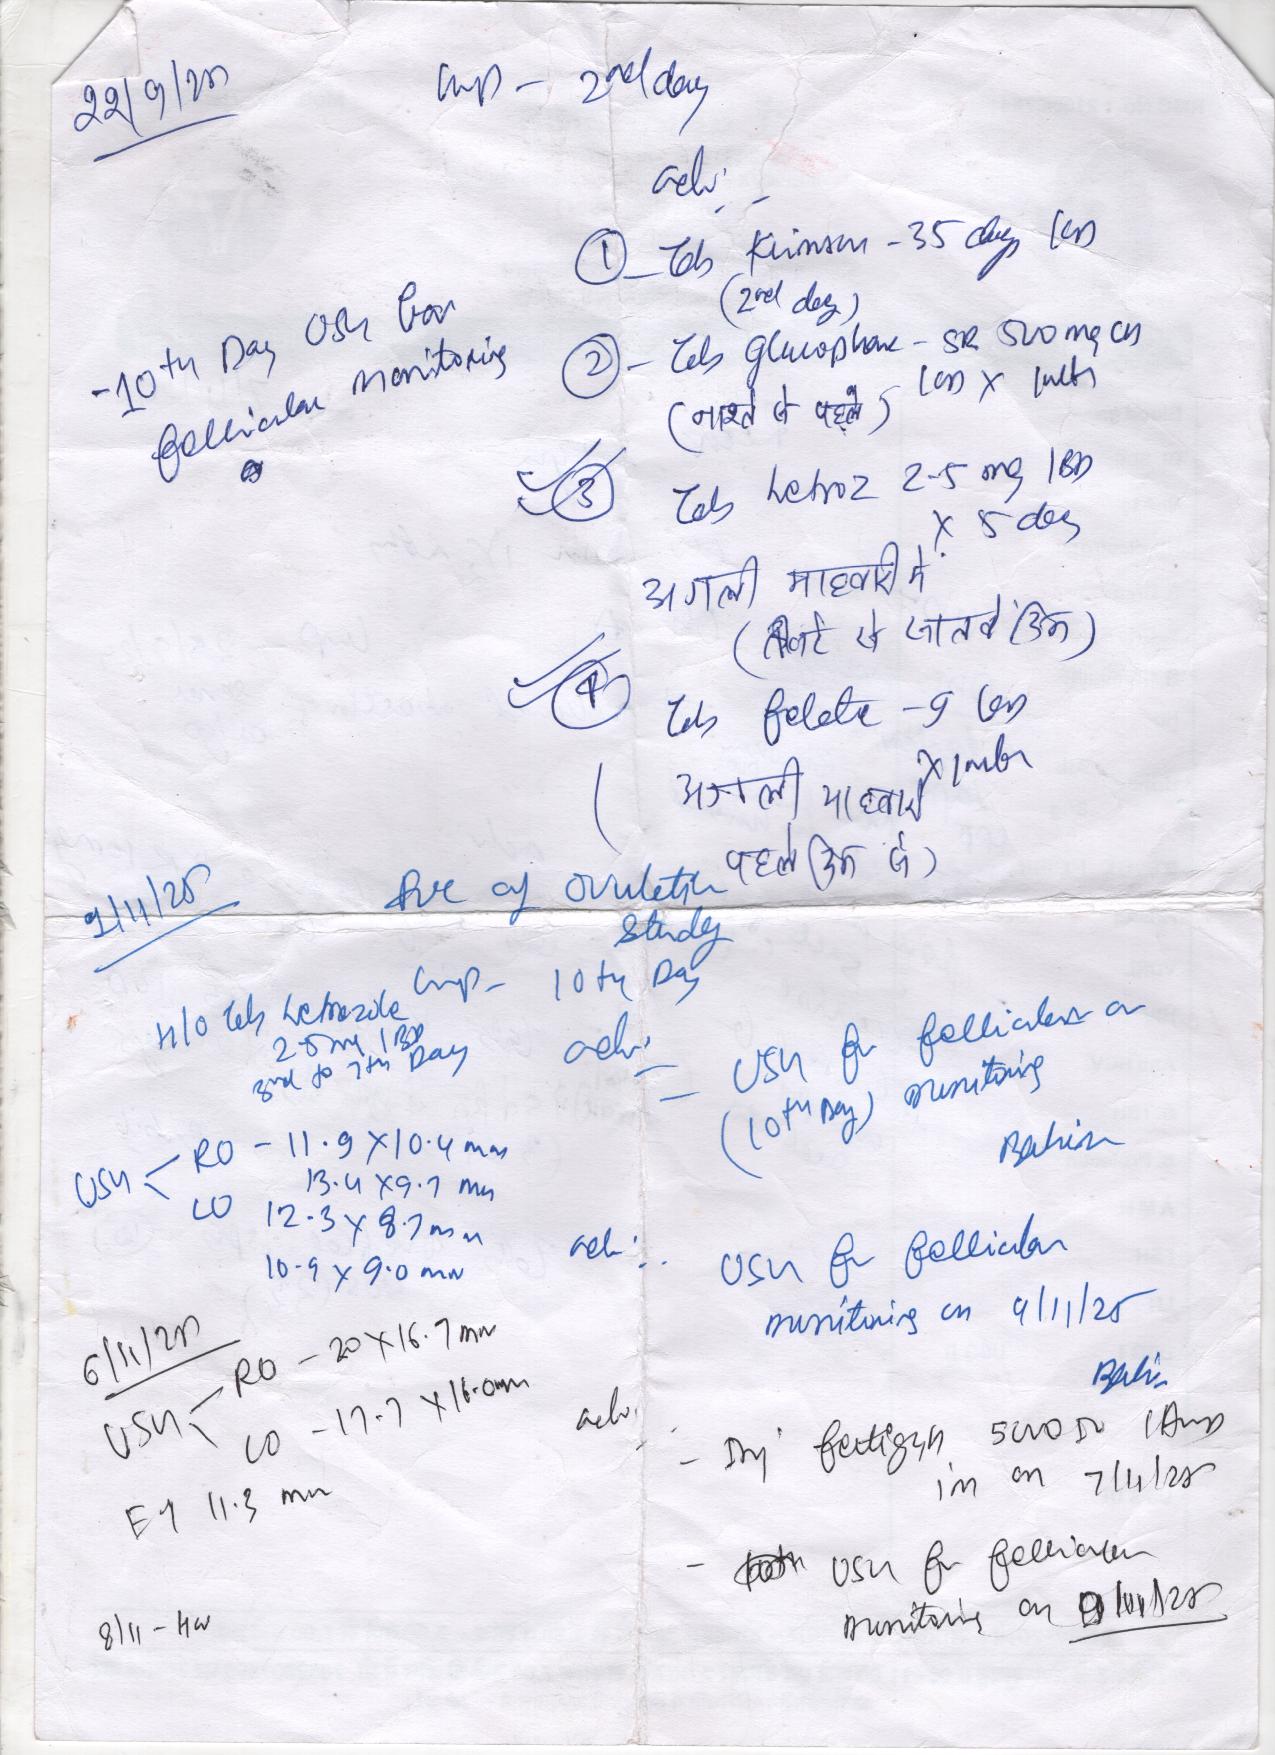 22/9/25
LMP - 2nd day
adv:-
① - Tab Krimson - 35 day 1OD
(2nd day)
② - Tab glucophage - SR 500 mg OD
1OD X 1mth
(नाश्ते से पहले)
- 10th Day USG for
follicular monitoring
③ Tab Letroz 2.5 mg 1BD
X 5 day
अगली माहवारी में
(तीसरे से सातवें दिन)
④ Tab folate - 9 1OD
X 1mth
(अगली माहवारी
पहले दिन से)
1/11/25
of ovulation
study
LMP - 10th Day
H/O Tab Letrozole
2.5 mg 1BD
3rd to 7th Day
adv:-
- USG for follicular
(10th Day) monitoring
USG < RO - 11.9 X 10.4 mm
13.4 X 9.7 mm
LO 12.3 X 8.7 mm
10.9 X 9.0 mm
adv:-
USG for follicular
monitoring on 4/11/25
6/11/25
USG < RO - 20 X 16.7 mm
LO - 17.7 X 16.0 mm
ET 11.3 mm
adv:-
- Inj fertigyn 5000 IU 1Amp
im on 7/11/25
- USG for follicular
monitoring on
8/11 -